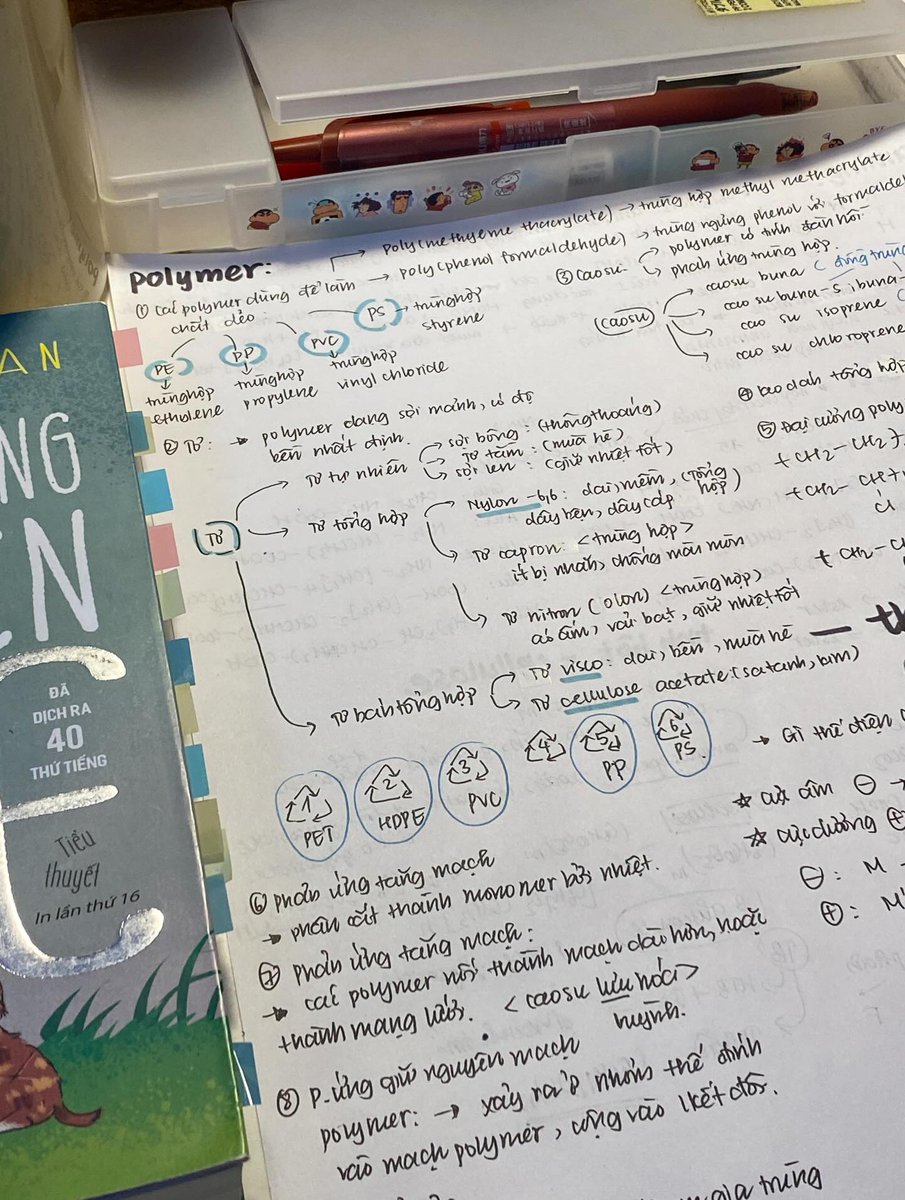 → poly(methyeme thacrylate) → trùng hợp methyl methacrylate
polymer: → poly(phenol formaldehyde) → trùng ngưng phenol
① các polymer dùng để làm
chất dẻo
PE
PP
PVC
PS → trùng hợp
styrene
trùng hợp
ethulene
trùng hợp
propylene
trùng hợp
vinyl chloride
③ caosu
polymer có tính đàn hồi.
phản ứng trùng hợp.
caosu
caosu buna (
cao su buna-S
cao su isoprene
cao su chloroprene
② Tơ: → polymer dạng sợi mảnh, có độ
bền nhất định.
Tơ
Tơ tự nhiên
sợi bông: (thông thoáng)
Tơ tằm: (mùa hè)
sợi len: (giữ nhiệt tốt)
Tơ tổng hợp
Nylon-6,6: dai, mềm, (tổng hợp)
dây bện, dây cáp
Tơ capron: <trùng hợp>
ít bị nhăn, chống mài mòn
Tơ nitron (olon) <trùng hợp>
áo ấm, vải bạt, giữ nhiệt tốt
Tơ bán tổng hợp
Tơ visco: dai, bền, mùa hè
Tơ cellulose acetate (satanh,
④ keo dán tổng hợp
⑤ Đại cương poly
+CH2-CH2+
+CH2-CH+
Cl
+CH2-C
1
PET
2
HDPE
3
PVC
4
5
PP
6
PS
→ Gì thế điện
☆ cực âm ⊖ →
☆ cực dương ⊕
⊖: M
⊕: M
⑥ phản ứng tăng mạch
→ phân cắt thành monomer bởi nhiệt.
⑦ phản ứng tăng mạch:
→ các polymer nối thành mạch dài hơn, hoặc
thành mạng lưới. <caosu lưu hóa>
huỳnh.
⑧ P.ứng giữ nguyên mạch
polymer: → xảy ra ở nhóm thế đính
vào mạch polymer, cộng vào lkết đôi.
gia trùng
AN
NG
ĐÃ
DỊCH RA
40
THỨ TIẾNG
Tiểu
thuyết
In lần thứ 16